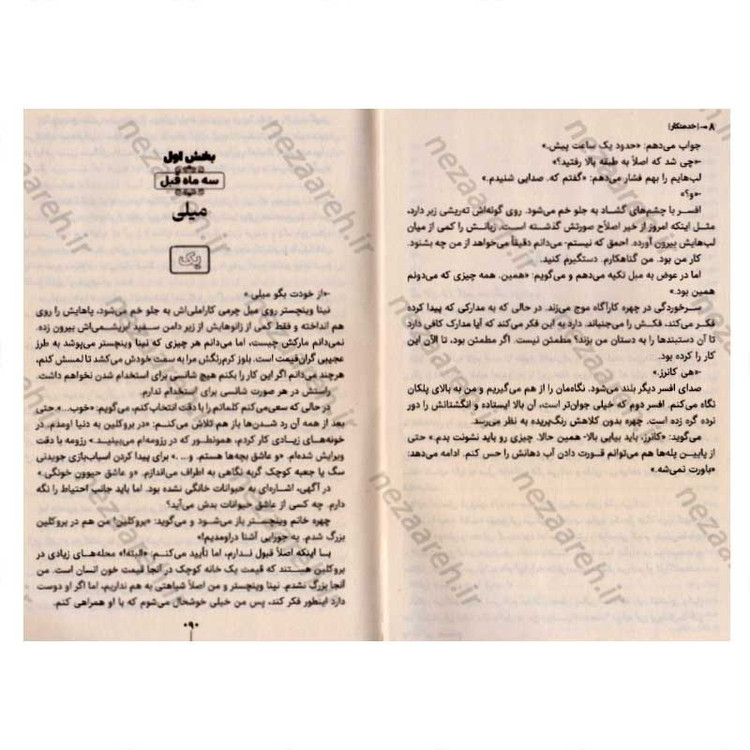 ۸ — | خدمتکار |
جواب می‌دهم: «حدود یک ساعت پیش.»
-«چی شد که اصلاً به طبقه بالا رفتید؟»
لب‌هایم را بهم فشار می‌دهم: «گفتم که. صدایی شنیدم.»
-«و؟»
افسر با چشم‌های گشاد به جلو خم می‌شود. روی گونه‌اش ته‌ریشی زبر دارد،
مثل اینکه امروز از خیر اصلاح صورتش گذشته است. زبانش را کمی از میان
لب‌هایش بیرون آورده. احمق که نیستم- می‌دانم دقیقاً می‌خواهد از من چه بشنود.
کار من بود. من گناهکارم. دستگیرم کنید.
اما در عوض به مبل تکیه می‌دهم و می‌گویم: «همین. همه چیزی که می‌دونم
همین بود.»
سرخوردگی در چهره کارآگاه موج می‌زند. در حالی که به مدارکی که پیدا کرده
فکر می‌کند، فکش را می‌جنباند. دارد به این فکر می‌کند که آیا مدارک کافی دارد
تا آن دستبندها را به دستان من بزند؟ مطمئن نیست. اگر مطمئن بود، تا الآن این
کار را کرده بود.
-«هی کانرز.»
صدای افسر دیگر بلند می‌شود. نگاه‌مان را از هم می‌گیریم و من به بالای پلکان
نگاه می‌کنم. افسر دوم که خیلی جوان‌تر است، آن بالا ایستاده و انگشتانش را دور
نرده گره زده است. چهره بدون کلاهش رنگ‌پریده به نظر می‌رسد.
می‌گوید: «کانرز، باید بیایی بالا- همین حالا. چیزی رو باید نشونت بدم.» حتی
از پایین پله‌ها هم می‌توانم قورت دادن آب دهانش را حس کنم. ادامه می‌دهد:
«باورت نمی‌شه.»
بخش اول
سه ماه قبل
میلی
یک
-«از خودت بگو میلی.»
نینا وینچستر روی مبل چرمی کاراملی‌اش به جلو خم می‌شود، پاهایش را روی
هم انداخته و فقط کمی از زانوهایش از زیر دامن سفید ابریشمی‌اش بیرون زده.
نمی‌دانم مارکش چیست، اما می‌دانم هر چیزی که نینا وینچستر می‌پوشد به طرز
عجیبی گران‌قیمت است. بلوز کرم‌رنگش مرا به سمت خودش می‌کشد تا لمسش کنم،
هرچند می‌دانم اگر این کار را بکنم هیچ شانسی برای استخدام شدن نخواهم داشت.
راستش در هر صورت شانسی برای استخدام ندارم.
در حالی که سعی می‌کنم کلماتم را با دقت انتخاب کنم، می‌گویم: «خوب...» حتی
بعد از همه آن رد شدن‌ها باز هم تلاش می‌کنم: «در بروکلین به دنیا اومدم. در
خونه‌های زیادی کار کردم، همونطور که در رزومه‌ام می‌بینید.» رزومه با دقت
ویرایش شده‌ام. «و عاشق بچه‌ها هستم. و... .» برای پیدا کردن اسباب‌بازی جویدنی
سگ یا جعبه کوچک گربه نگاهی به اطراف می‌اندازم. «و عاشق حیوون خونگی.»
در آگهی، اشاره‌ای به حیوانات خانگی نشده بود. اما باید جانب احتیاط را نگه
دارم. چه کسی از عاشق حیوانات بدش می‌آید؟
چهره خانم وینچستر باز می‌شود و می‌گوید: «بروکلین! من هم در بروکلین
بزرگ شدم. یه جورایی آشنا دراومدیم!»
با اینکه اصلاً قبول ندارم، اما تأیید می‌کنم: «البته!» محله‌های زیادی در
بروکلین هستند که قیمت یک خانه کوچک در آنجا قیمت خون انسان است. من
آنجا بزرگ نشدم. نینا وینچستر و من اصلاً شباهتی به هم نداریم، اما اگر او دوست
دارد اینطور فکر کند، پس من خیلی خوشحال می‌شوم که با او همراهی کنم.
۰۹۰
nezaareh.ir نظاره